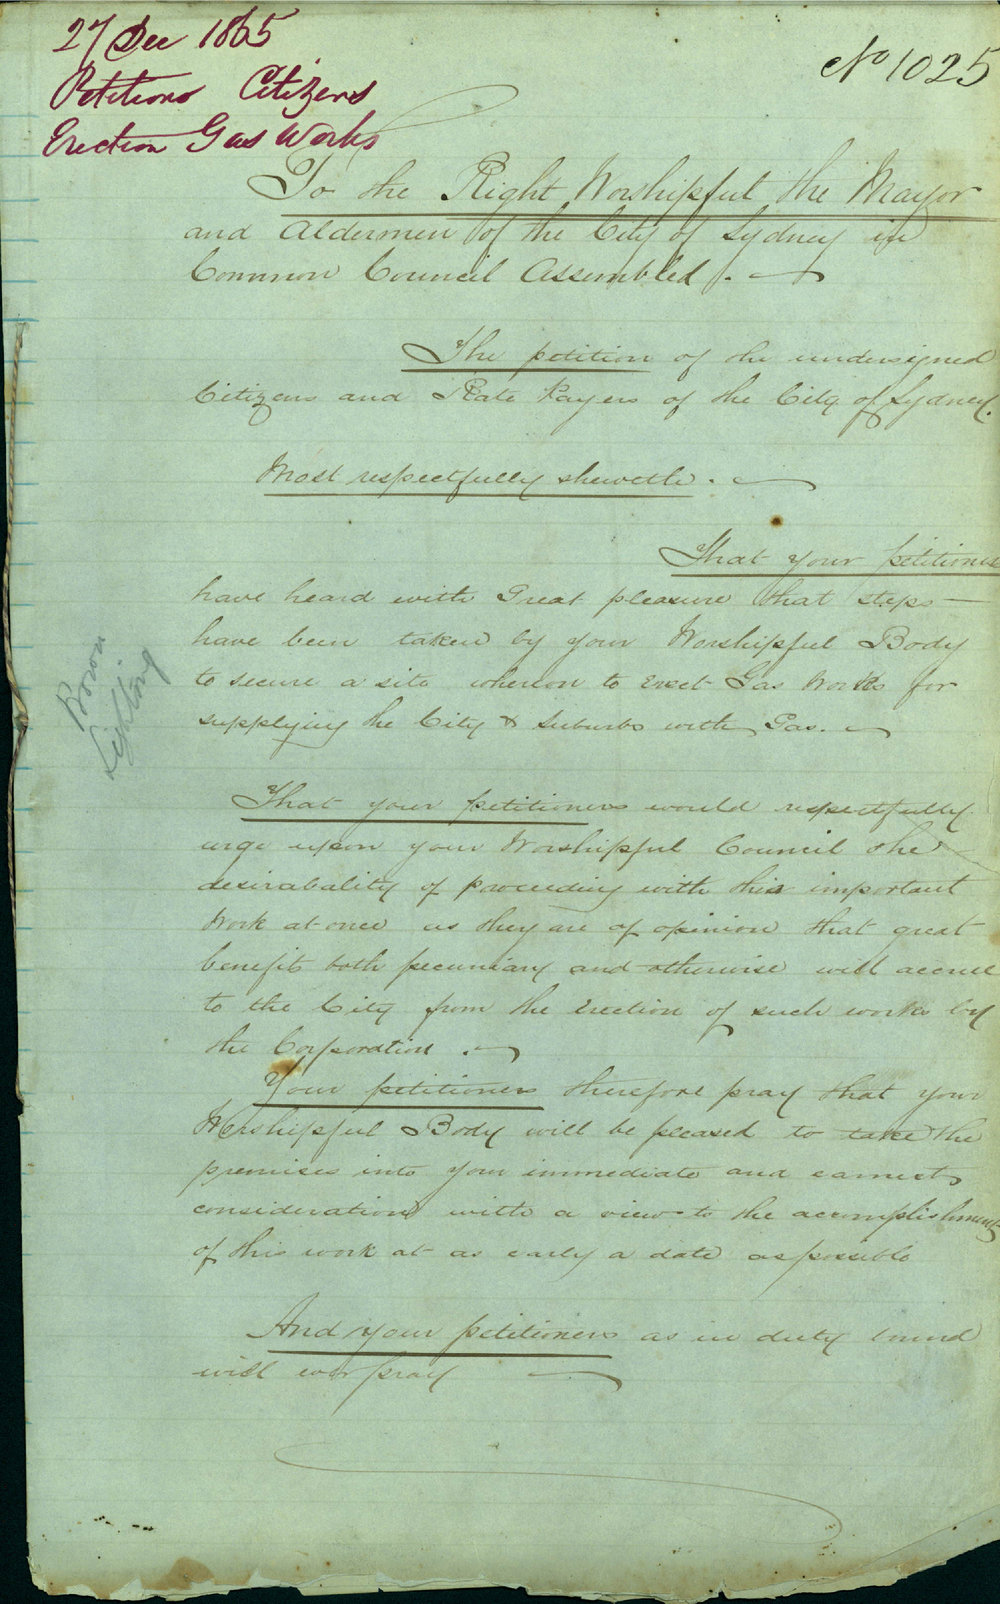 27 Dec 1865
Petitions Citizens
Erection Gas Works
No 1025
To the Right Worshipful the Mayor
and Aldermen of the City of Sydney in
Common Council Assembled.
The petition of the undersigned
Citizens and Rate Payers of the City of Sydney.
Most respectfully sheweth.
That your petitioners
have heard with Great pleasure that steps
have been taken by your Worshipful Body
to secure a site whereon to Erect Gas Works for
supplying the City & Suburbs with Gas.
Lighting
That your petitioners would respectfully
urge upon your Worshipful Council the
desirabality of proceeding with this important
Work at once as they are of opinion that great
benefit both pecuniary and otherwise will accrue
to the City from the Erection of such works by
the Corporation.
Your petitioners therefore pray that your
Worshipful Body will be pleased to take the
premises into your immediate and earnest
consideration with a view to the accomplishment
of this work at as early a date as possible
And your petitioners as in duty bound
will ever pray